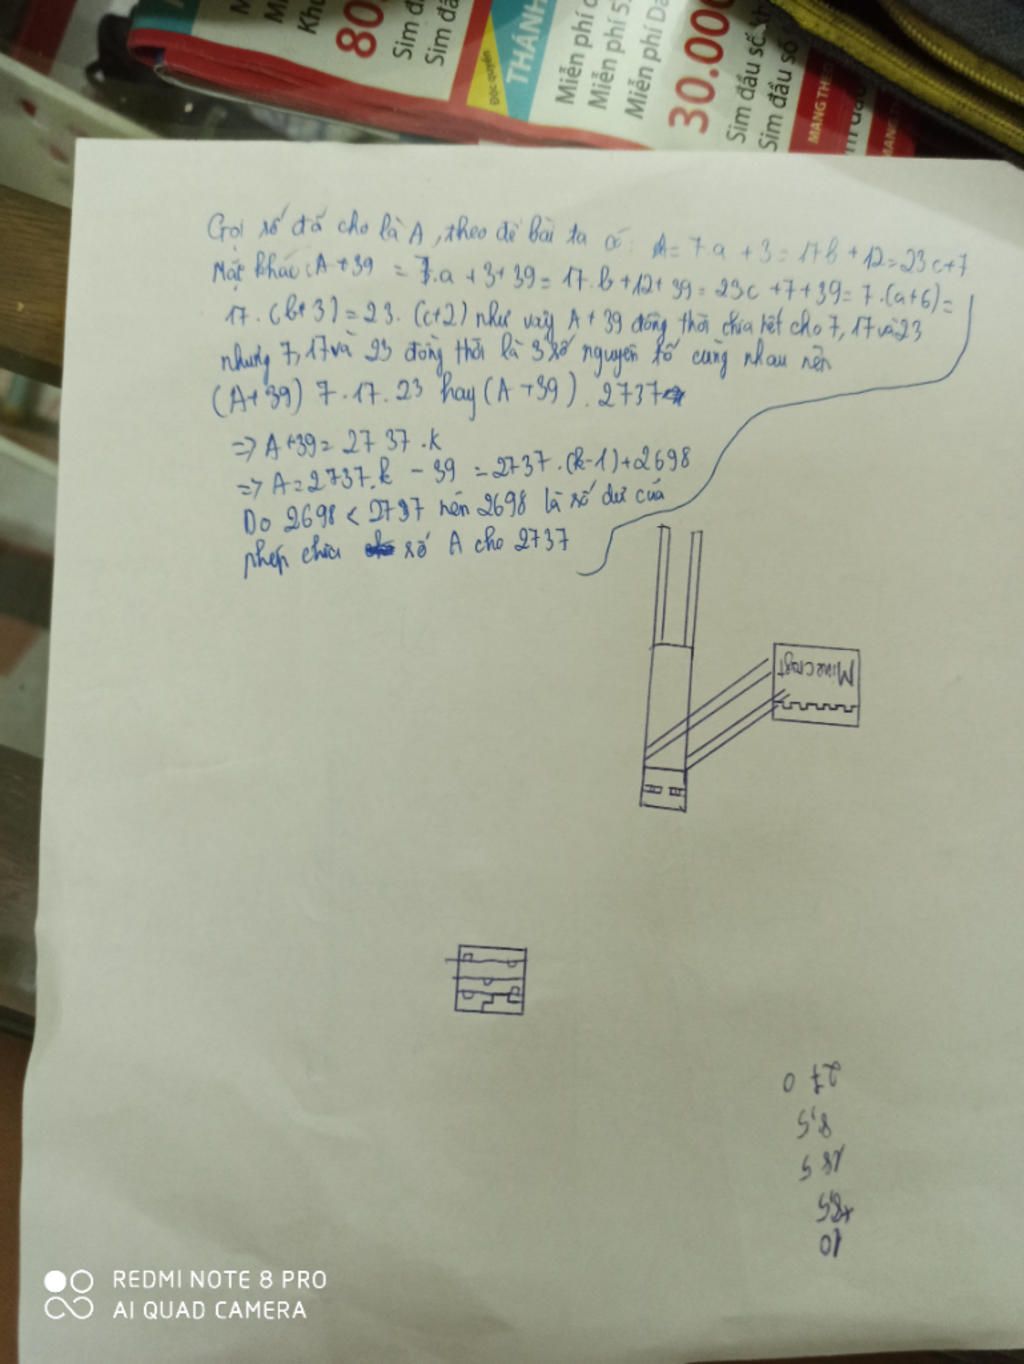 80
Sim đ
Sim đấ
Độc quyền
THÁNH
Miễn phí
Miễn phí 5
Miễn phí Da
30.000
Sim đầu số
Sim đầu số
MANG THE
MANG
Gọi số đã cho là A, theo đề bài ta có: A = 7.a + 3 = 17b + 12 = 23c + 7
Mặt khác: A + 39 = 7.a + 3 + 39 = 17.b + 12 + 39 = 23c + 7 + 39 = 7.(a+6) =
17.(b+3) = 23.(c+2) như vậy A + 39 đồng thời chia hết cho 7, 17 và 23
nhưng 7, 17 và 23 đồng thời là 3 số nguyên tố cùng nhau nên
(A+39) 7.17.23 hay (A+39) . 2737
=> A+39 = 2737.k
=> A = 2737.k - 39 = 2737.(k-1) + 2698
Do 2698 < 2737 nên 2698 là số dư của
phép chia số A cho 2737
Minecraft
10
+8,5
18 5
8,5
27 0
REDMI NOTE 8 PRO
AI QUAD CAMERA